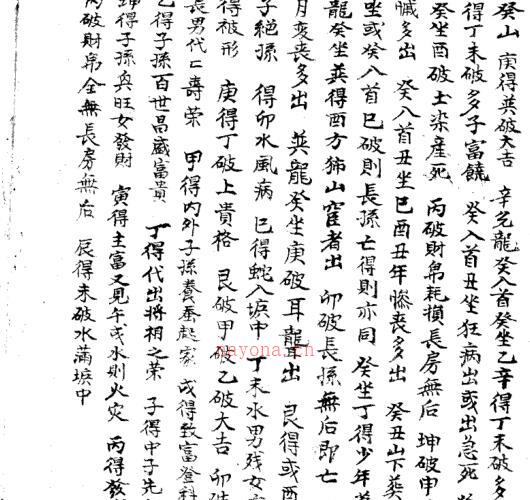 癸山 庚得巽破大吉 辛兌龍癸入首癸坐乙辛得丁未破多
得丁未破多子富饒 癸入首丑坐狂病出或出急死
癸坐酉破土染產死 丙破財帛耗損長房無后 坤破申
臟多出 癸入首丑坐巳酉丑年慘喪多出 癸丑山下
坐或癸入首巳破則長孫亡得則亦同 癸坐丁得少年
龍癸坐巽得西方獅山窺者出 卯破長孫無后即亡
月变丧多出 巽龍癸坐庚破耳聾出 艮得或酉
子絕孫 得卯水風病 巳得蛇入塚中 丁未水男残女
得被形 庚得丁破上貴格 艮破甲破乙破大吉 卯
長男代代壽荣 甲得内外子孫養蚕起家 戌得致富登科
乙得子孫百世昌盛富貴 丁得代出將相之荣 子得中子先
坤得子孫兵旺女發財 寅得主富又見午戌水則火灾 丙得發
丙破財帛全無長房無后 辰得未破水滿塚中
nayona.cn